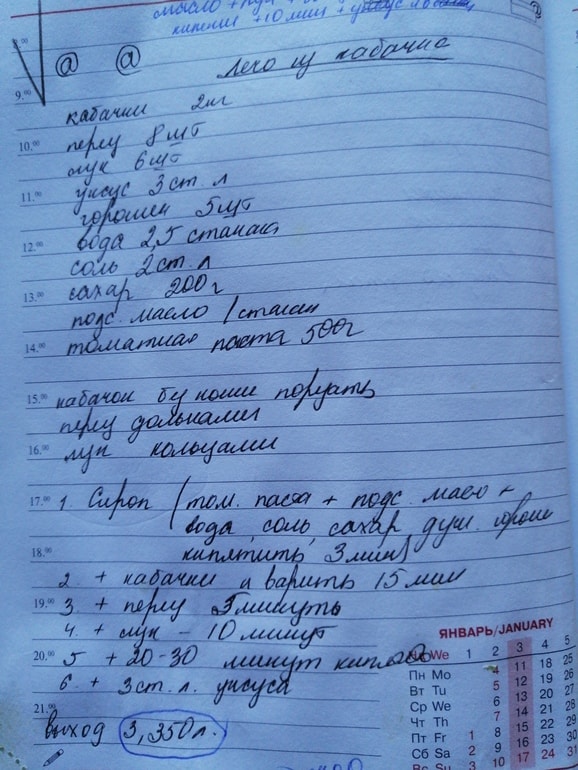 масло +
кипения +10 мин + уксус
8.00
@ @ лечо из кабачка
9.00
кабачки 2кг
10.00 перец 8 шт
лук 6 шт
11.00 уксус 3 ст. л
горошек 5 шт
12.00 вода 2,5 стакана
соль 2 ст. л
13.00 сахар 200 г
подс. масло 1 стакан
14.00 томатная паста 500г
15.00 кабачок порезать
перец дольками
16.00 лук кольцами
17.00 1. Сироп (том. паста + подс. масло +
вода, соль, сахар душ. горошек
18.00 кипятить 3 мин)
2. + кабачки и варить 15 мин
19.00 3. + перец 5 минуть
4. + лук - 10 минут
20.00 5 + 20-30 минут
6. + 3 ст. л. уксуса
21.00
выход 3,350 л.
ЯНВАРЬ/JANUARY
We 1 2 3 4 5
Пн Mo 4 11 18 25
Вт Tu 5 12 19 26
Ср We 6 13 20 27
Чт Th 7 14 21 28
Пт Fr 1 8 15 22 29
Сб Sa 2 9 16 23 30
Вс Su 3 10 17 24 31